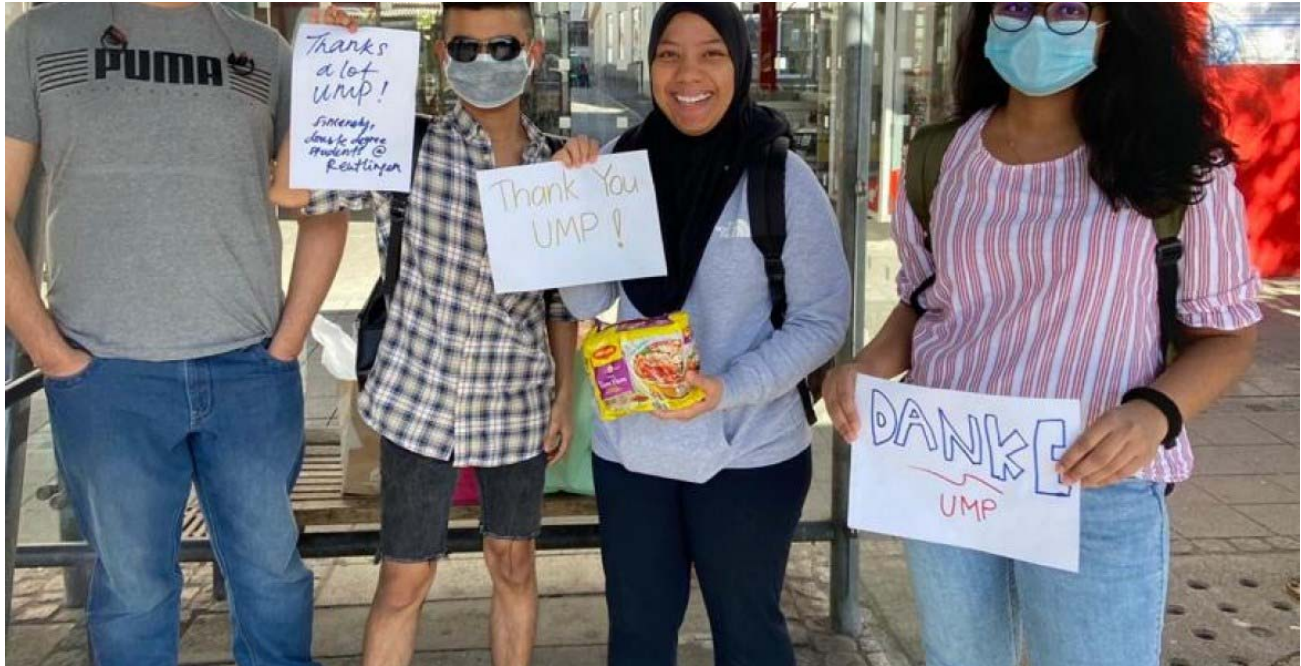 PUMA
Thanks
a lot
UMP!
Sincerely,
double degree
students @
Reutlingen
Thank You
UMP!
MAGGI
Tom Yam
DANKE
UMP